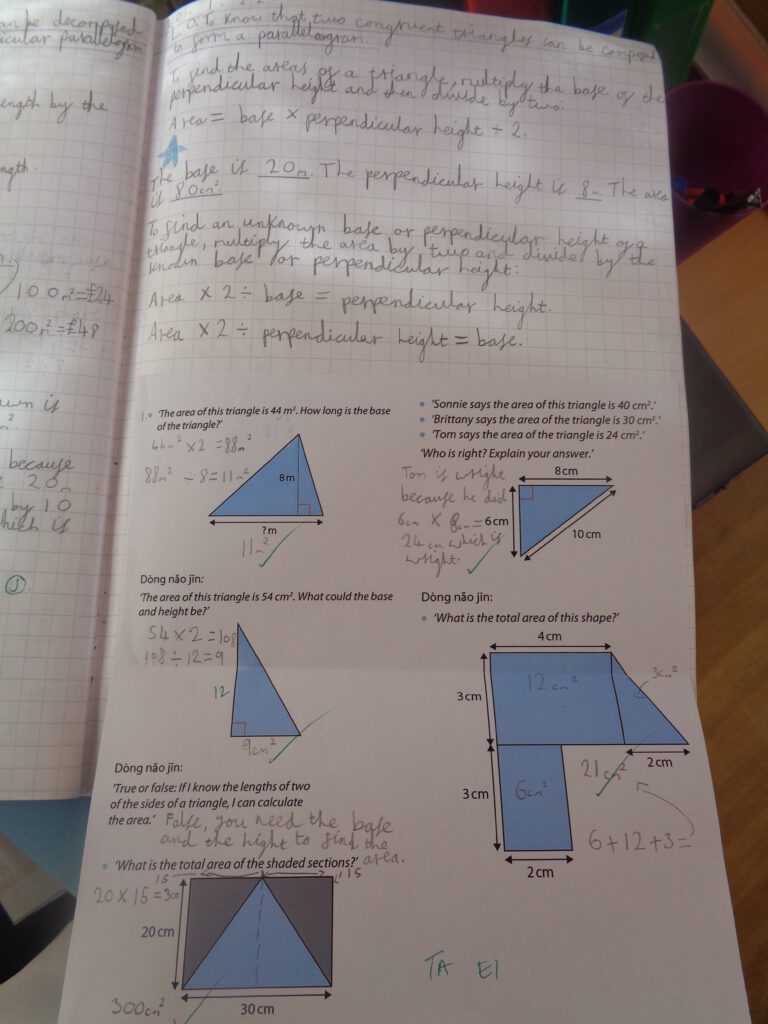 an be decomposed
icular parallelogram.
ength by the
ngth.
100m²=£24
200m²=£48
wn is
because
20m
by 10
which is
L.O. To know that two congruent triangles can be composed
to form a parallelogram.
To find the areas of a triangle, multiply the base by the
perpendicular height and then divide by two:
Area = base × perpendicular height ÷ 2.
The base is 20m. The perpendicular height is 8m. The area
is 80cm².
To find an unknown base or perpendicular height of a
triangle, multiply the area by two and divide by the
known base or perpendicular height:
Area × 2 ÷ base = perpendicular height.
Area × 2 ÷ perpendicular height = base.
1. • 'The area of this triangle is 44 m². How long is the base
of the triangle?'
44m² ×2 =88m²
88m² ÷8=11m²
8m
?m
11m²
• 'Sonnie says the area of this triangle is 40 cm².'
• 'Brittany says the area of the triangle is 30 cm².'
• 'Tom says the area of the triangle is 24 cm².'
'Who is right? Explain your answer.'
Tom is wright
because he did
6cm × 8cm=
24cm which is
wright.
8cm
6cm
10cm
Dòng nǎo jīn:
'The area of this triangle is 54 cm². What could the base
and height be?'
54 ×2 =108
108÷12=9
12
9cm²
Dòng nǎo jīn:
• 'What is the total area of this shape?'
4cm
3cm
12cm²
3cm²
2cm
3cm
6cm²
21cm²
6+12+3=
2cm
Dòng nǎo jīn:
'True or false: If I know the lengths of two
of the sides of a triangle, I can calculate
the area.' False, you need the base
and the hight to find the
area.
• 'What is the total area of the shaded sections?'
15
15
20 × 15 =300
20cm
30cm
300cm²
TA EI